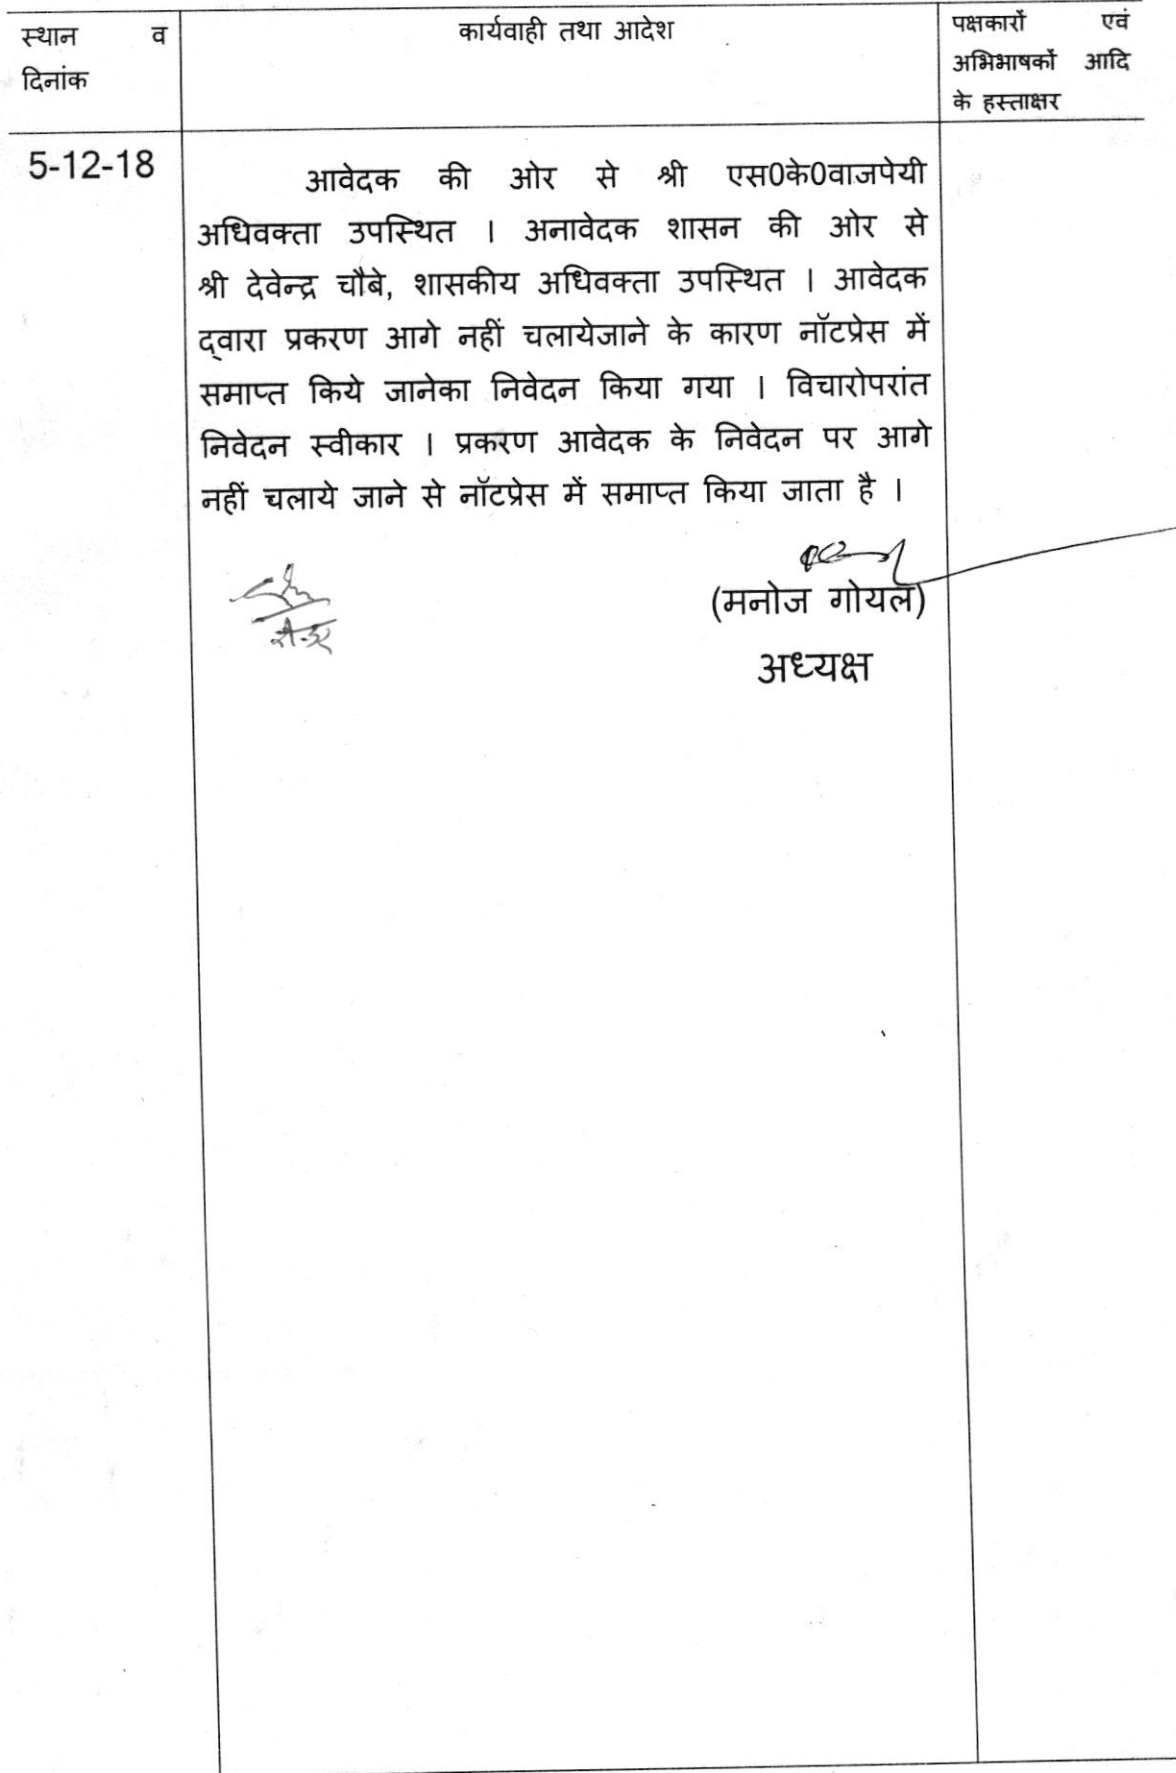 स्थान व
दिनांक
कार्यवाही तथा आदेश
पक्षकारों एवं
अभिभाषकों आदि
के हस्ताक्षर
5-12-18
आवेदक की ओर से श्री एस0के0वाजपेयी
अधिवक्ता उपस्थित । अनावेदक शासन की ओर से
श्री देवेन्द्र चौबे, शासकीय अधिवक्ता उपस्थित । आवेदक
द्वारा प्रकरण आगे नहीं चलायेजाने के कारण नॉटप्रेस में
समाप्त किये जानेका निवेदन किया गया । विचारोपरांत
निवेदन स्वीकार । प्रकरण आवेदक के निवेदन पर आगे
नहीं चलाये जाने से नॉटप्रेस में समाप्त किया जाता है ।
(मनोज गोयल)
अध्यक्ष